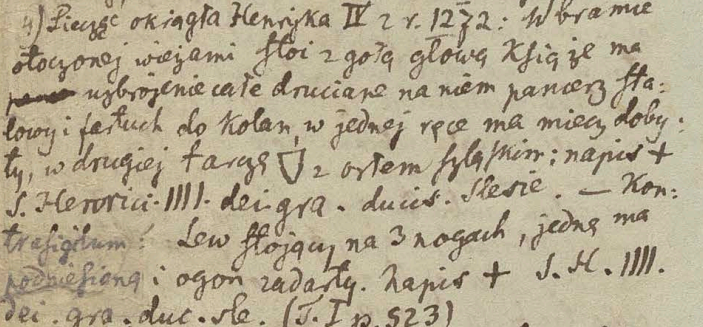 4) Pieczęć okrągła Henryka IV z r. 1272: W bramie
otoczonej wieżami stoi z gołą głową Książe ma
uzbrojenie całe druciane na niem pancerz sta:
lowy i fartuch do kolan, w jednej ręce ma miecz doby:
ty, w drugiej tarczę z orłem szląskim; napis +
S. Henrici. IIII. dei. gra. ducis. Slesie. — Kon:
trasigilum: Lew stojący na 3 nogach, jedną ma
podniesioną i ogon zadarty. Napis + S. H. IIII.
dei. gra. duc. sle. (T. I p. 523)